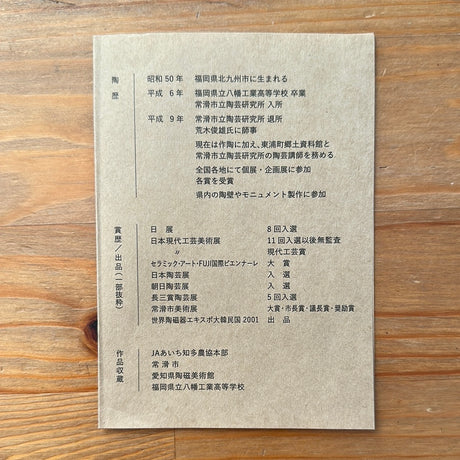 陶歴
昭和50年 福岡県北九州市に生まれる
平成 6年 福岡県立八幡工業高等学校 卒業
常滑市立陶芸研究所 入所
平成 9年 常滑市立陶芸研究所 退所
荒木俊雄氏に師事
現在は作陶に加え、東浦町郷土資料館と
常滑市立陶芸研究所の陶芸講師を務める
全国各地にて個展・企画展に参加
各賞を受賞
県内の陶壁やモニュメント製作に参加
賞歴／出品(一部抜粋)
日展 8回入選
日本現代工芸美術展 11回入選以後無監査
〃 現代工芸賞
セラミック・アート・FUJI国際ビエンナーレ 大賞
日本陶芸展 入選
朝日陶芸展 入選
長三賞陶芸展 5回入選
常滑市美術展 大賞・市長賞・議長賞・奨励賞
世界陶磁器エキスポ大韓民国2001 出品
作品収蔵
JAあいち知多農協本部
常滑市
愛知県陶磁美術館
福岡県立八幡工業高等学校